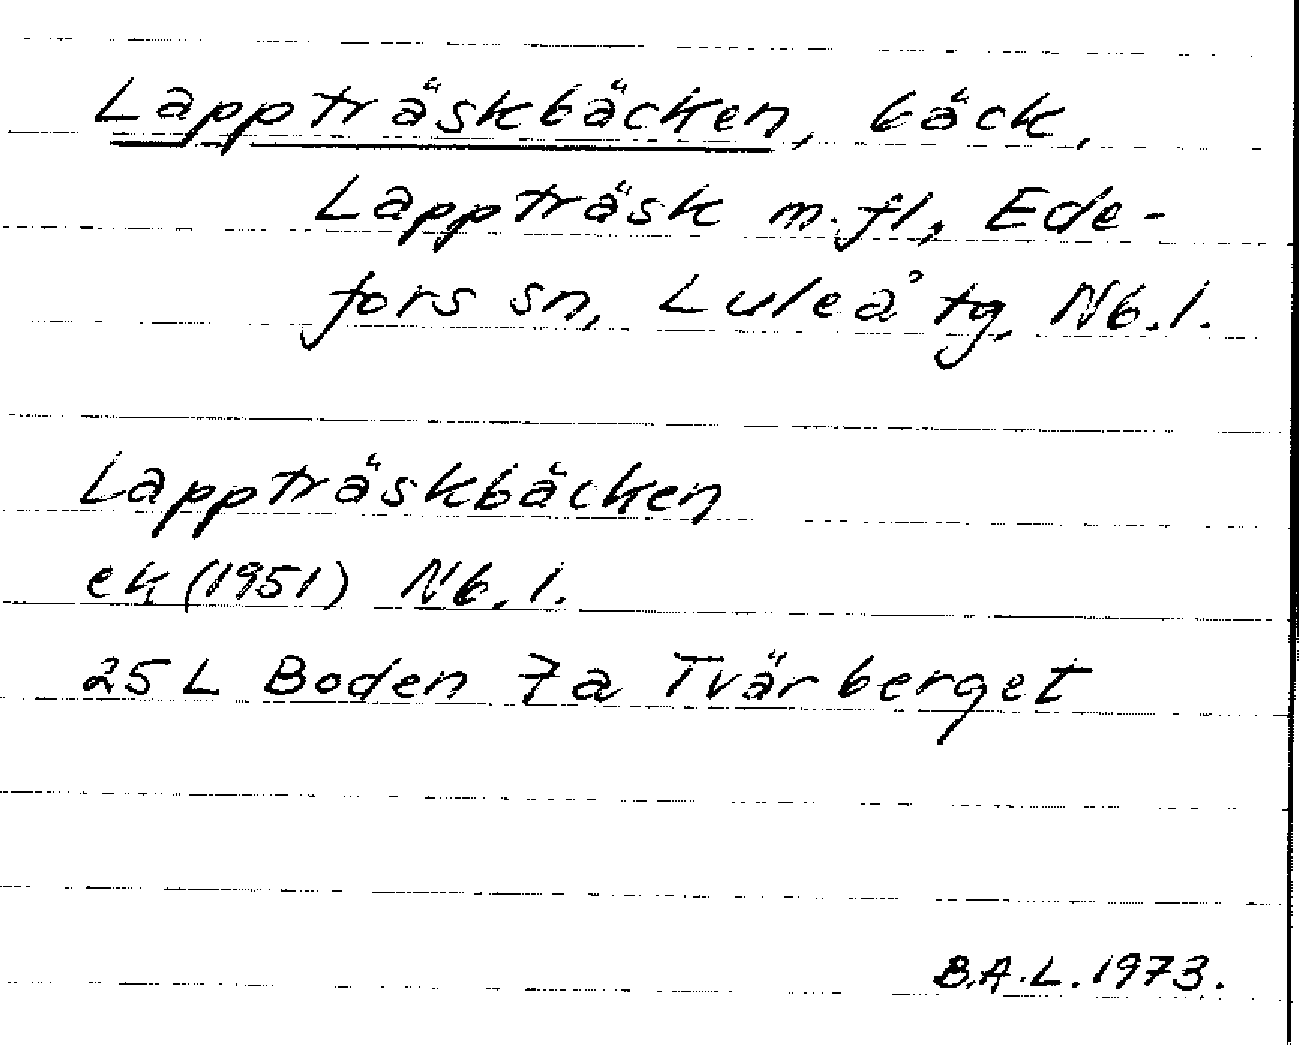 Lappträskbäcken, bäck,
Lappträsk m.fl., Ede-
fors sn, Luleå tg, Nb.l.
Lappträskbäcken
ek (1951) Nb.l.
25 L Boden 7a Tvärberget
B.A.L. 1973.